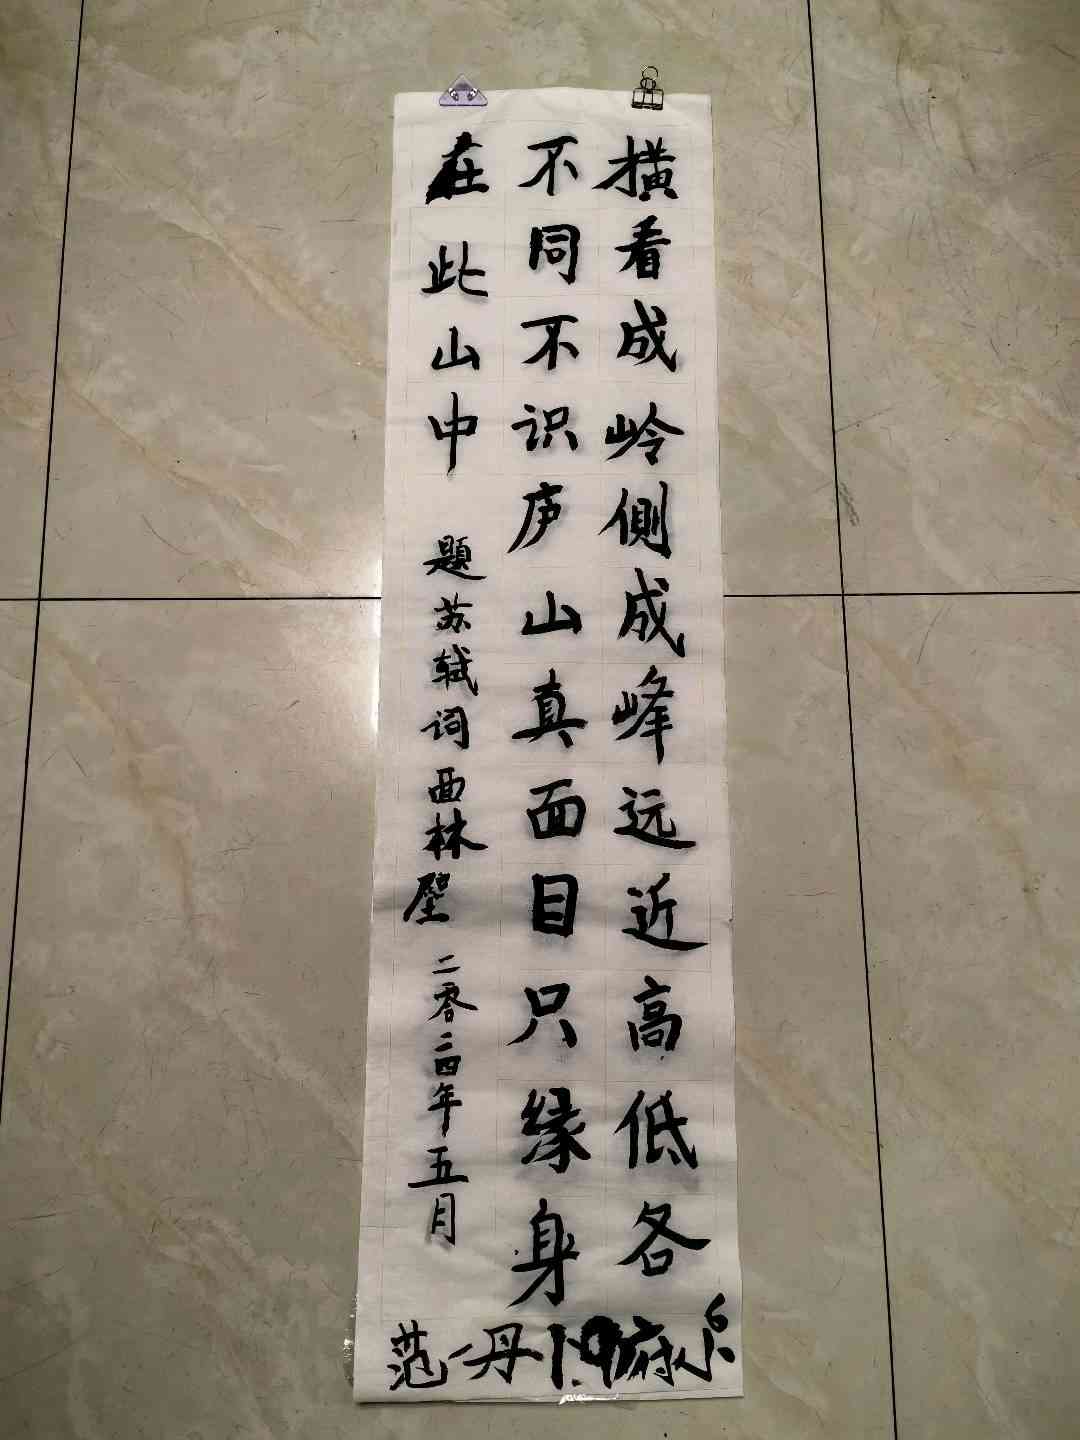 横看成岭侧成峰远近高低各
不同不识庐山真面目只缘身
在此山中
题苏轼词西林壁二零二四年五月
范一丹